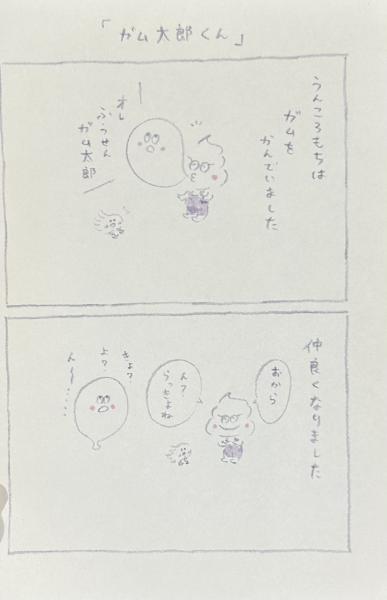 「ガム太郎くん」
うんころもちは
ガムを
かんでいました
オレ
ふうせん
ガム太郎
仲良くなりました
おから
ん?
らっきょね
きょ?
よ?
ん〜……